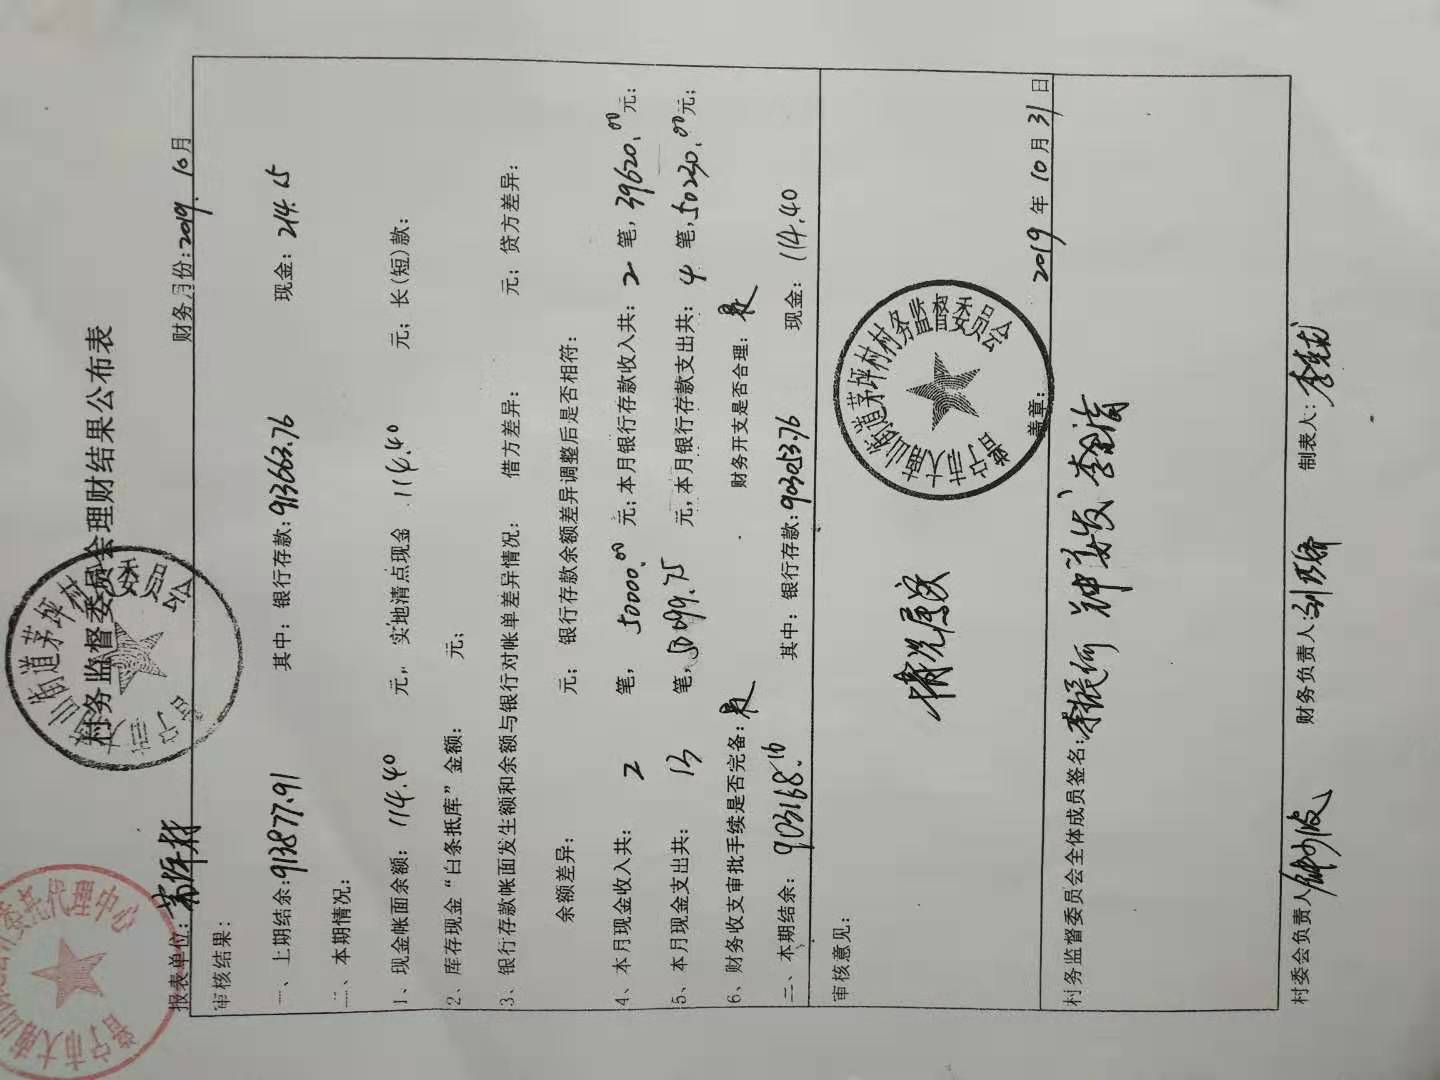 村务监督委员会理财结果公布表
报表单位:茅坪村 财务月份:2019.10月
审核结果:
一、上期结余:913877.91 其中: 银行存款:913663.76 现金: 214.15
二、本期情况:
1、现金帐面余额: 114.40 元, 实地清点现金 114.40 元; 长(短)款:
2、库存现金“白条抵库”金额: 元;
3、银行存款帐面发生额和余额与银行对帐单差异情况: 借方差异: 元; 贷方差异:
余额差异: 元; 银行存款余额差异调整后是否相符:
4、本月现金收入共: 2 笔, 50000.00 元;本月银行存款收入共: 2 笔, 39620.00元;
5、本月现金支出共: 13 笔,50099.75 元,本月银行存款支出共: 4 笔,50230.00元;
6、财务收支审批手续是否完备:是 财务开支是否合理: 是
二、本期结余: 903168.16 其中: 银行存款:903053.76 现金: 114.40
审核意见:
情况属实
普宁市大南山街道茅坪村村务监督委员会
盖章:
2019 年 10 月 31 日
村务监督委员会全体成员签名:
村委会负责人 财务负责人: 制表人: